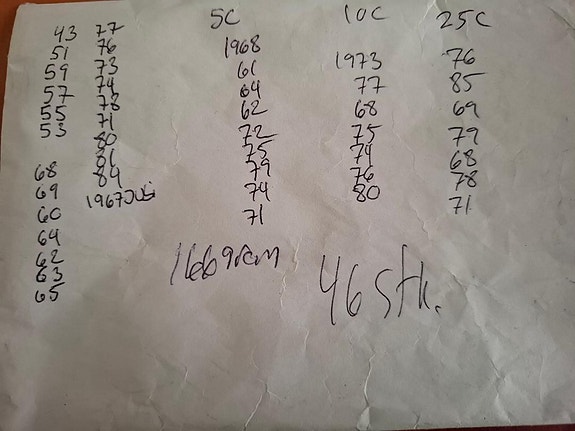 43
51
59
57
55
53
68
69
60
64
62
63
65
77
76
73
74
78
71
80
81
84
1967 Jubi
5C
1968
61
64
62
72
75
79
74
71
10C
1973
77
68
75
74
76
80
25C
76
85
69
79
68
78
71
166 gram
46 Stk.